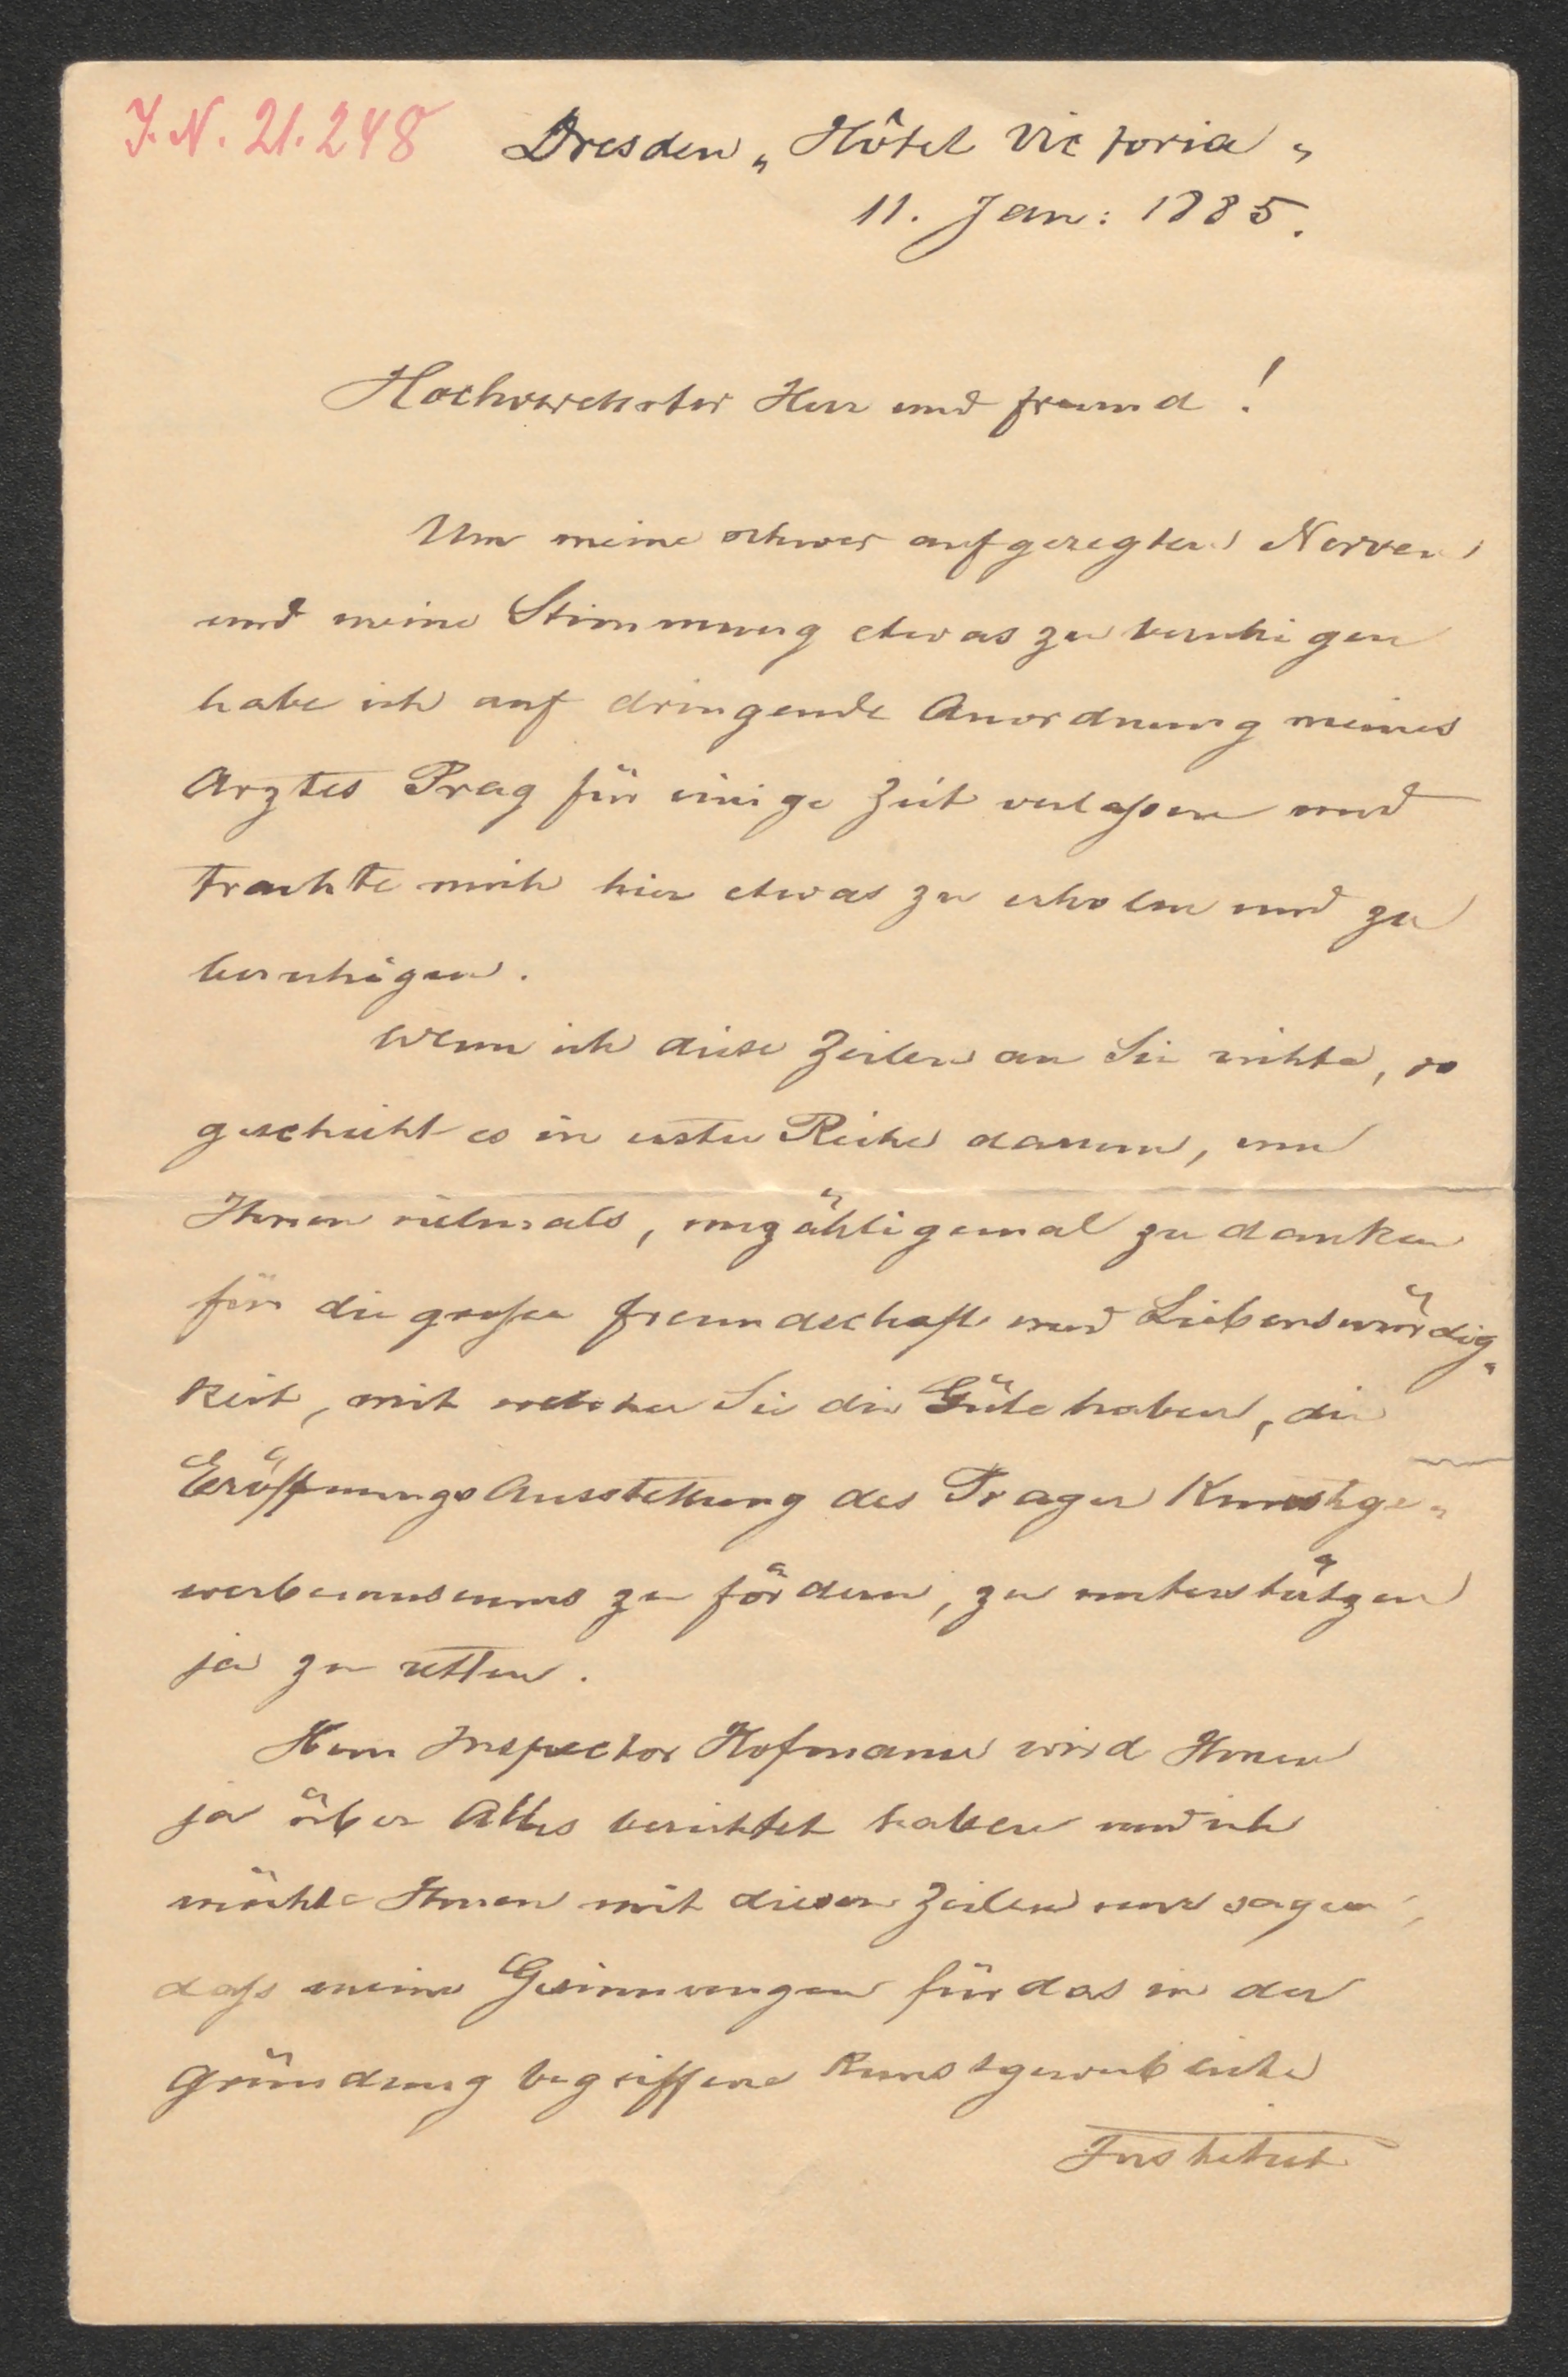 J. N. 21.248
Dresden „Hôtel Victoria„
11. Jan: 1885.
Hochverehrter Herr und Freund!
Um meine schwer aufgeregten Nerven
und meine Stimmung etwas zu beruhigen
habe ich auf dringende Anordnung meines
Arztes Prag für einige Zeit verlaßen und
trachte mich hier etwas zu erholen und zu
beruhigen.
Wenn ich diese Zeilen an Sie richte, so
geschieht es in erster Reihe darum, um
Ihnen vielmals, unzähligemal zu danken
für die große Freundschaft und Liebenswürdig„
keit, mit welcher Sie die Güte haben, die
Eröffnungs Ausstellung des Prager Kunstge„
werbemuseums zu fördern, zu unterstützen
ja zu retten.
Herr Inspector Hofmann wird Ihnen
ja über Alles berichtet haben und ich
möchte Ihnen mit diesen Zeilen nur sagen,
daß meine Gesinnungen für das in der
Gründung begriffene kunstgewerbliche
Institut